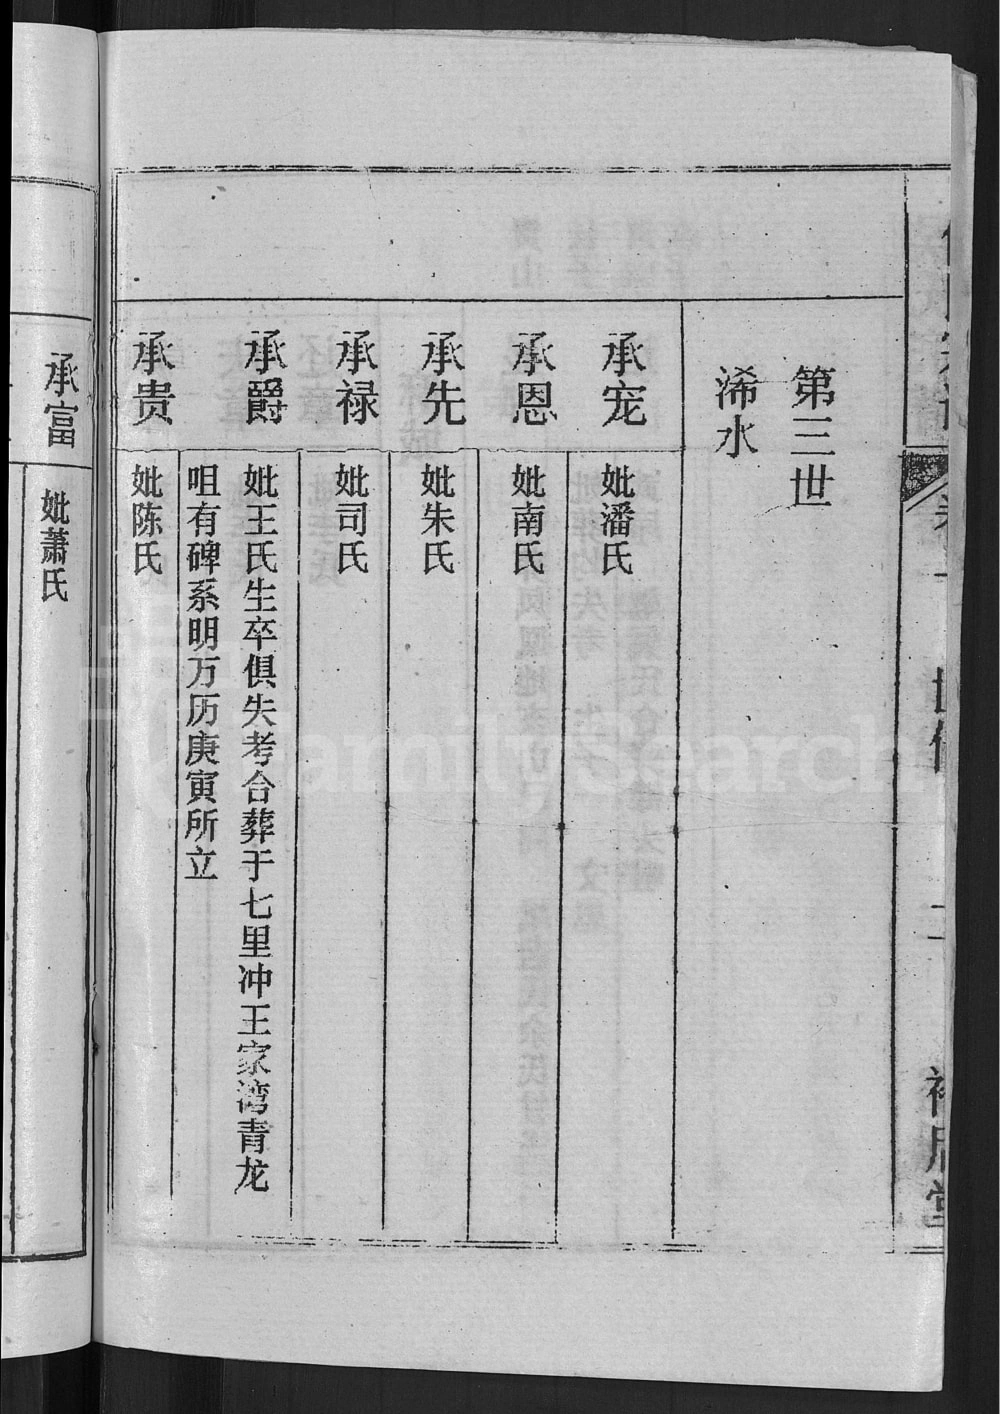 第三世
浠水
承宠
妣潘氏
承恩
妣南氏
承先
妣朱氏
承禄
妣司氏
承爵
妣王氏生卒俱失考合葬于七里冲王家湾青龙
咀有碑系明万历庚寅所立
承贵
妣陈氏
承富
妣萧氏
FamilySearch